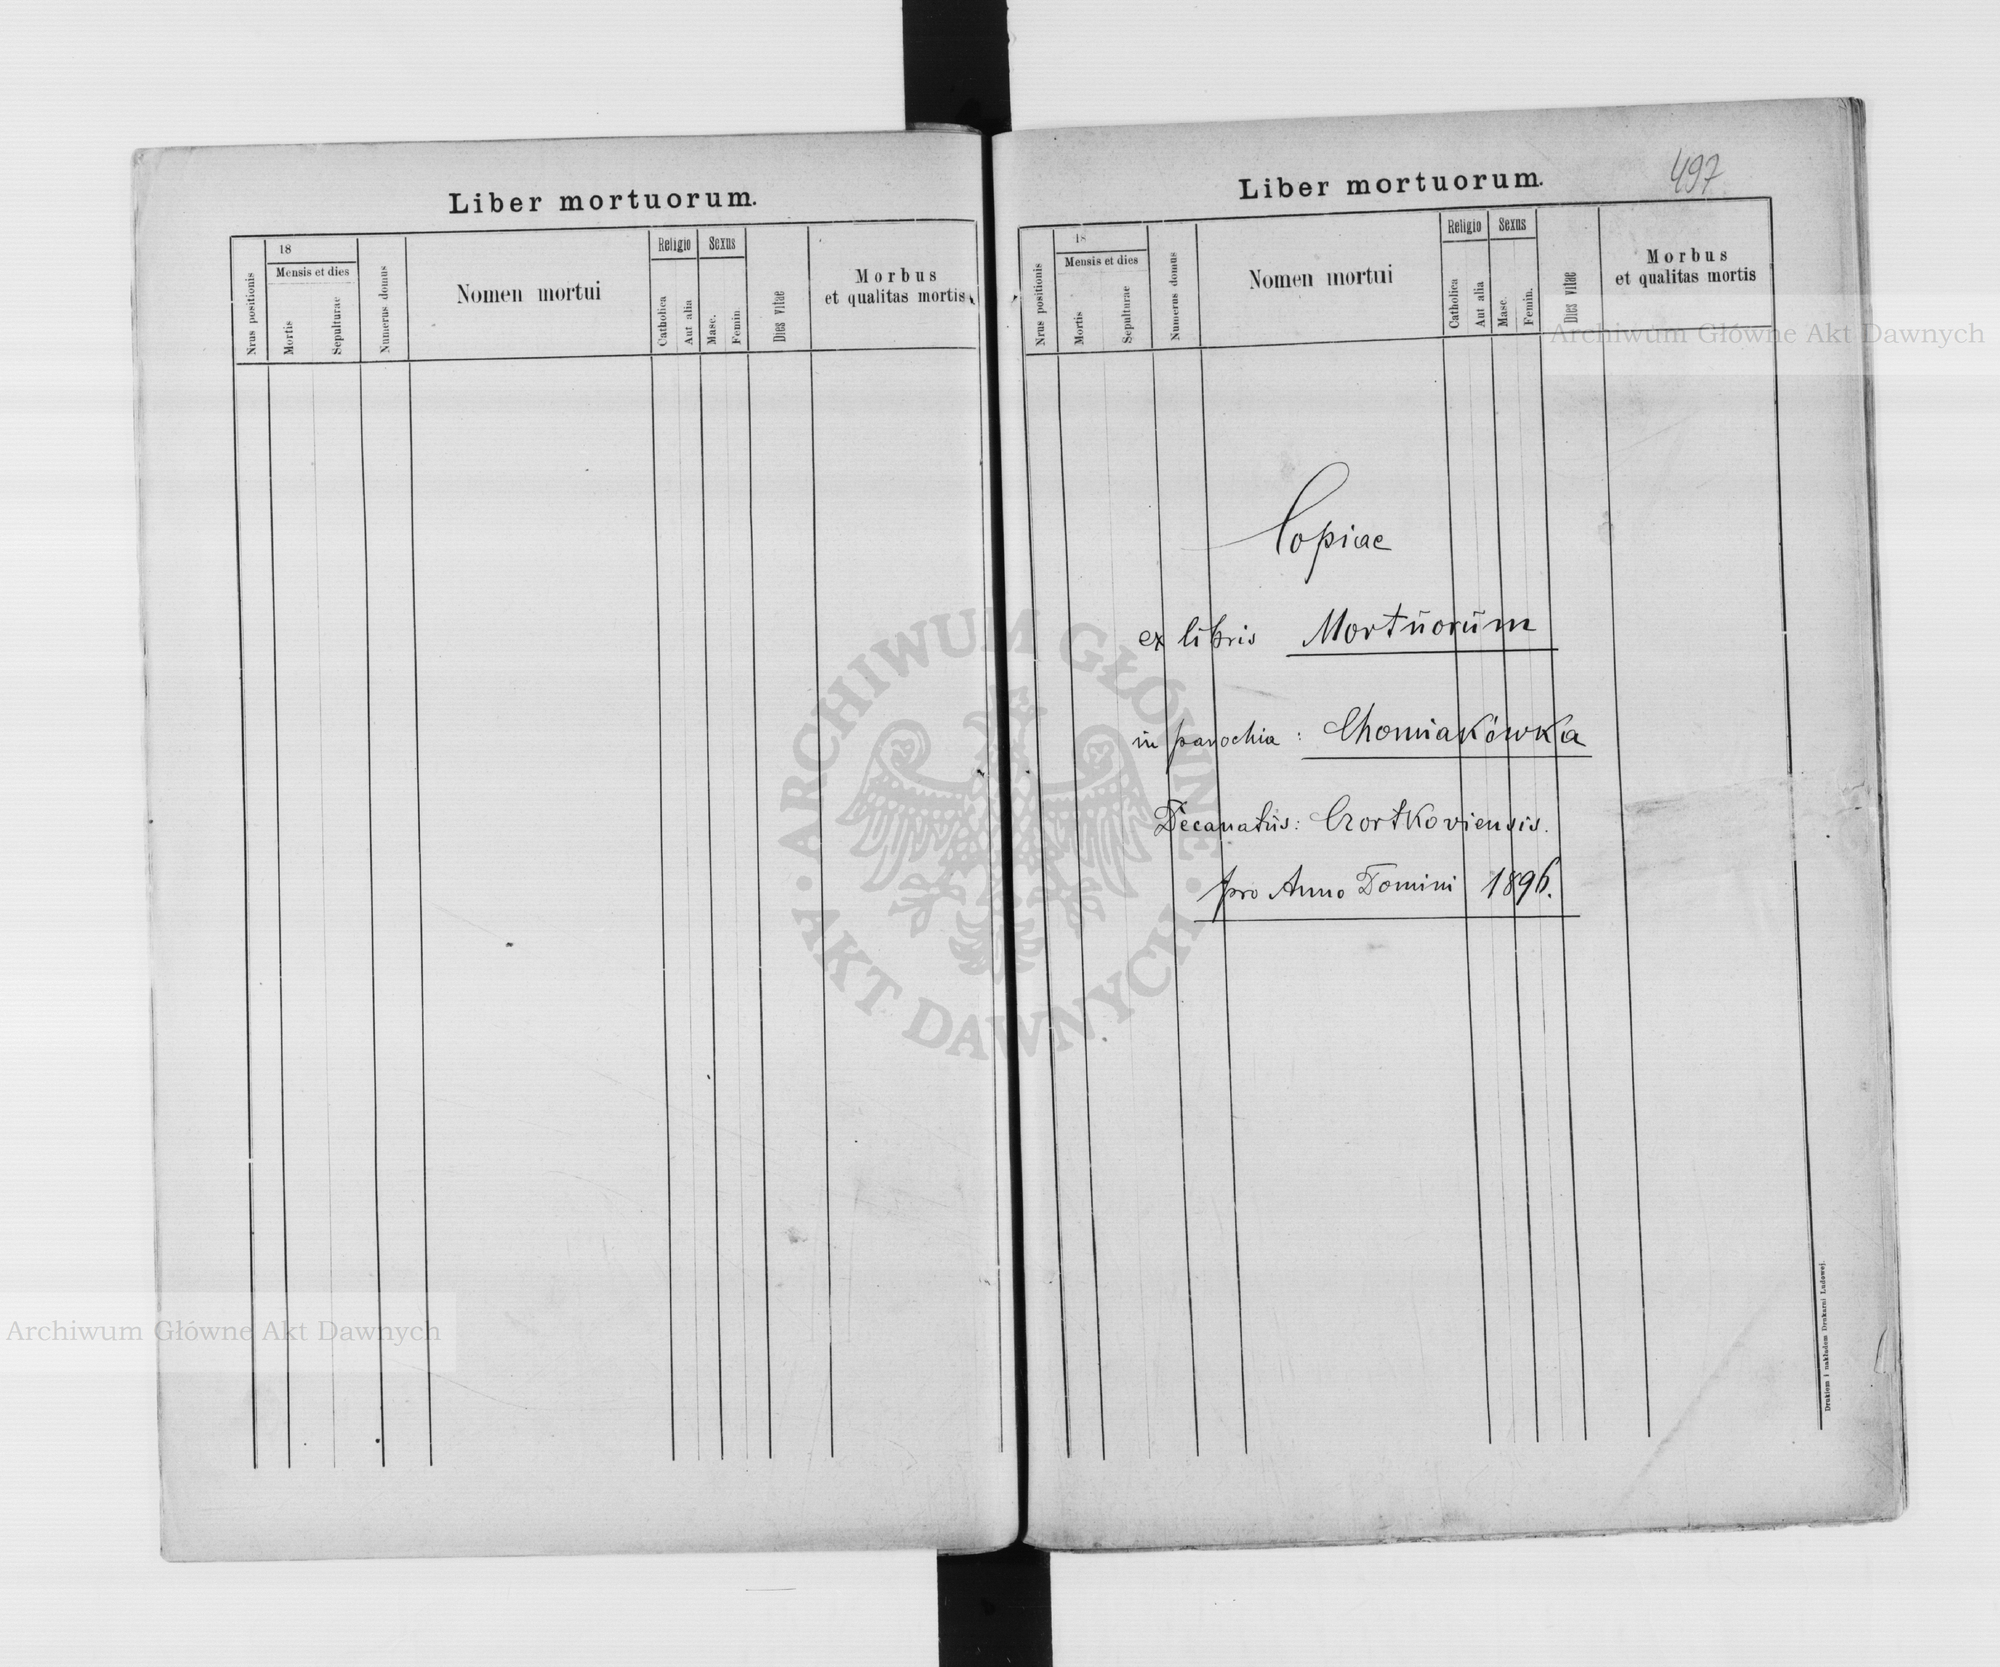 Liber mortuorum.
Nrus positionis
18
Mensis et dies
Mortis
Sepulturae
Numerus domus
Nomen mortui
Religio
Catholica
Aut alia
Sexus
Masc.
Femin.
Dies vitae
Morbus
et qualitas mortis
Liber mortuorum.
497
Nrus positionis
18
Mensis et dies
Mortis
Sepulturae
Numerus domus
Nomen mortui
Religio
Catholica
Aut alia
Sexus
Masc.
Femin.
Dies vitae
Morbus
et qualitas mortis
Copiae
ex libris Mortuorum
in parochia: Chomiakówka
Decanatus: Czortkoviensis.
pro Anno Domini 1896.
Drukiem i nakładem Drukarni Ludowej.
Archiwum Główne Akt Dawnych
ARCHIWUM GŁÓWNE
AKT DAWNYCH
Archiwum Główne Akt Dawnych